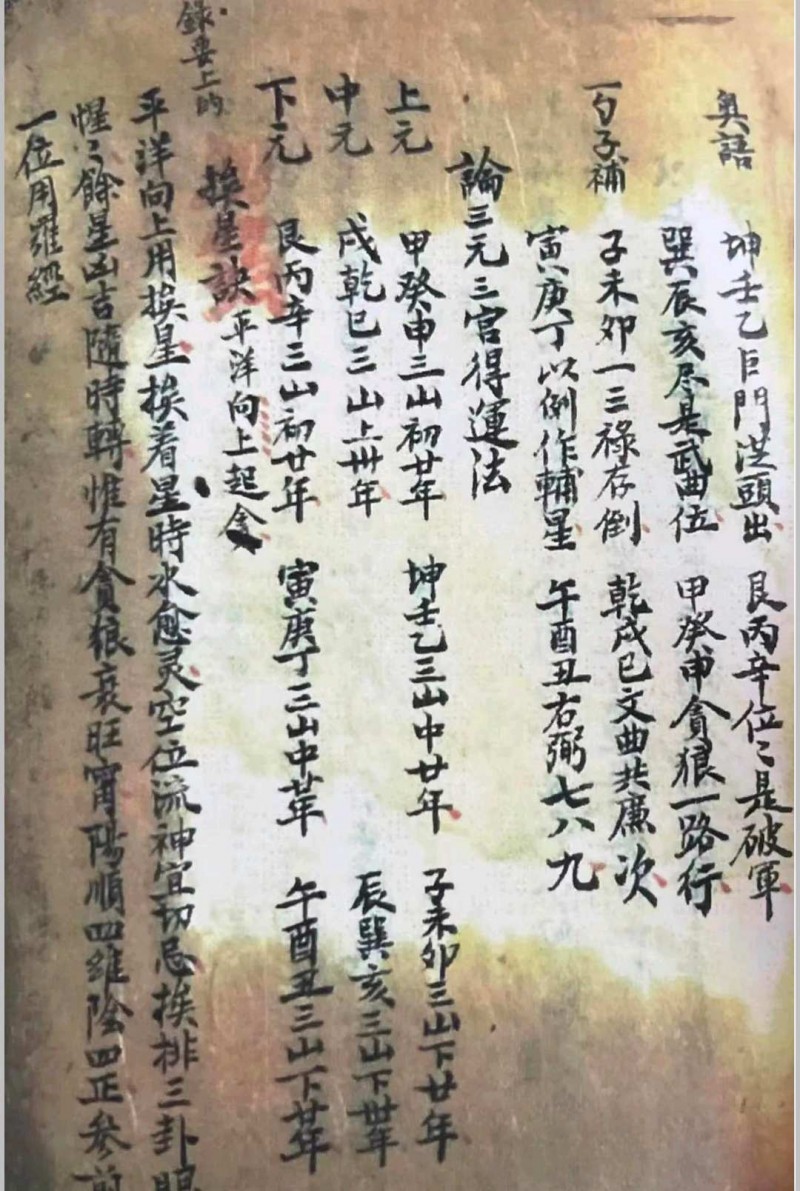 奥語
坤壬乙巨門從頭出　艮丙辛位〻是破軍
巽辰亥尽是武曲位　甲癸申貪狼一路行
一勺子補
子未卯一三祿存倒　乾戌巳文曲共廉次
寅庚丁以例作輔星　午酉丑右弼七八九
論三元三宮得運法
上元　甲癸申三山初廿年　坤壬乙三山中廿年　子未卯三山下廿年
中元　戌乾巳三山上卅年　辰巽亥三山下卅年
下元　艮丙辛三山初廿年　寅庚丁三山中廿年　午酉丑三山下廿年
錄要上的
挨星訣　平洋向上起貪
平洋向上用挨星挨着星時水愈灵空位流神宜切忌挨排三卦
惺〻餘星凶吉隨時轉惟有貪狼衰旺宵陽順四維陰四正參前
一位用羅經